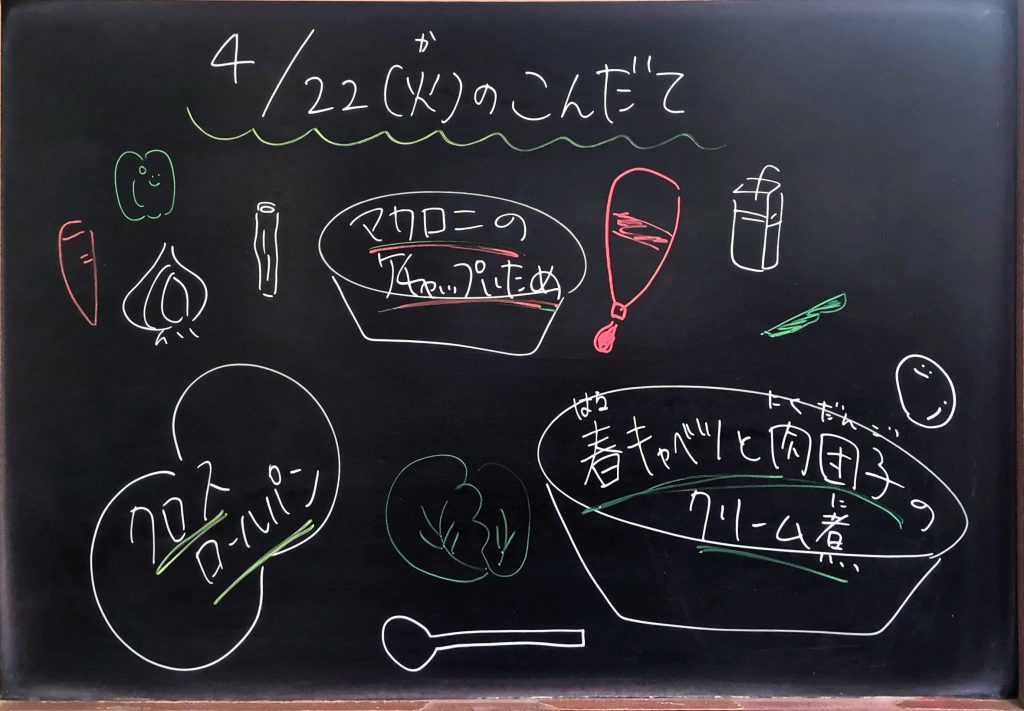 か
4/22(火)のこんだて
マカロニの
ケチャップいため
クロス
ロールパン
はる にくだんご
春キャベツと肉団子の
に
クリーム煮